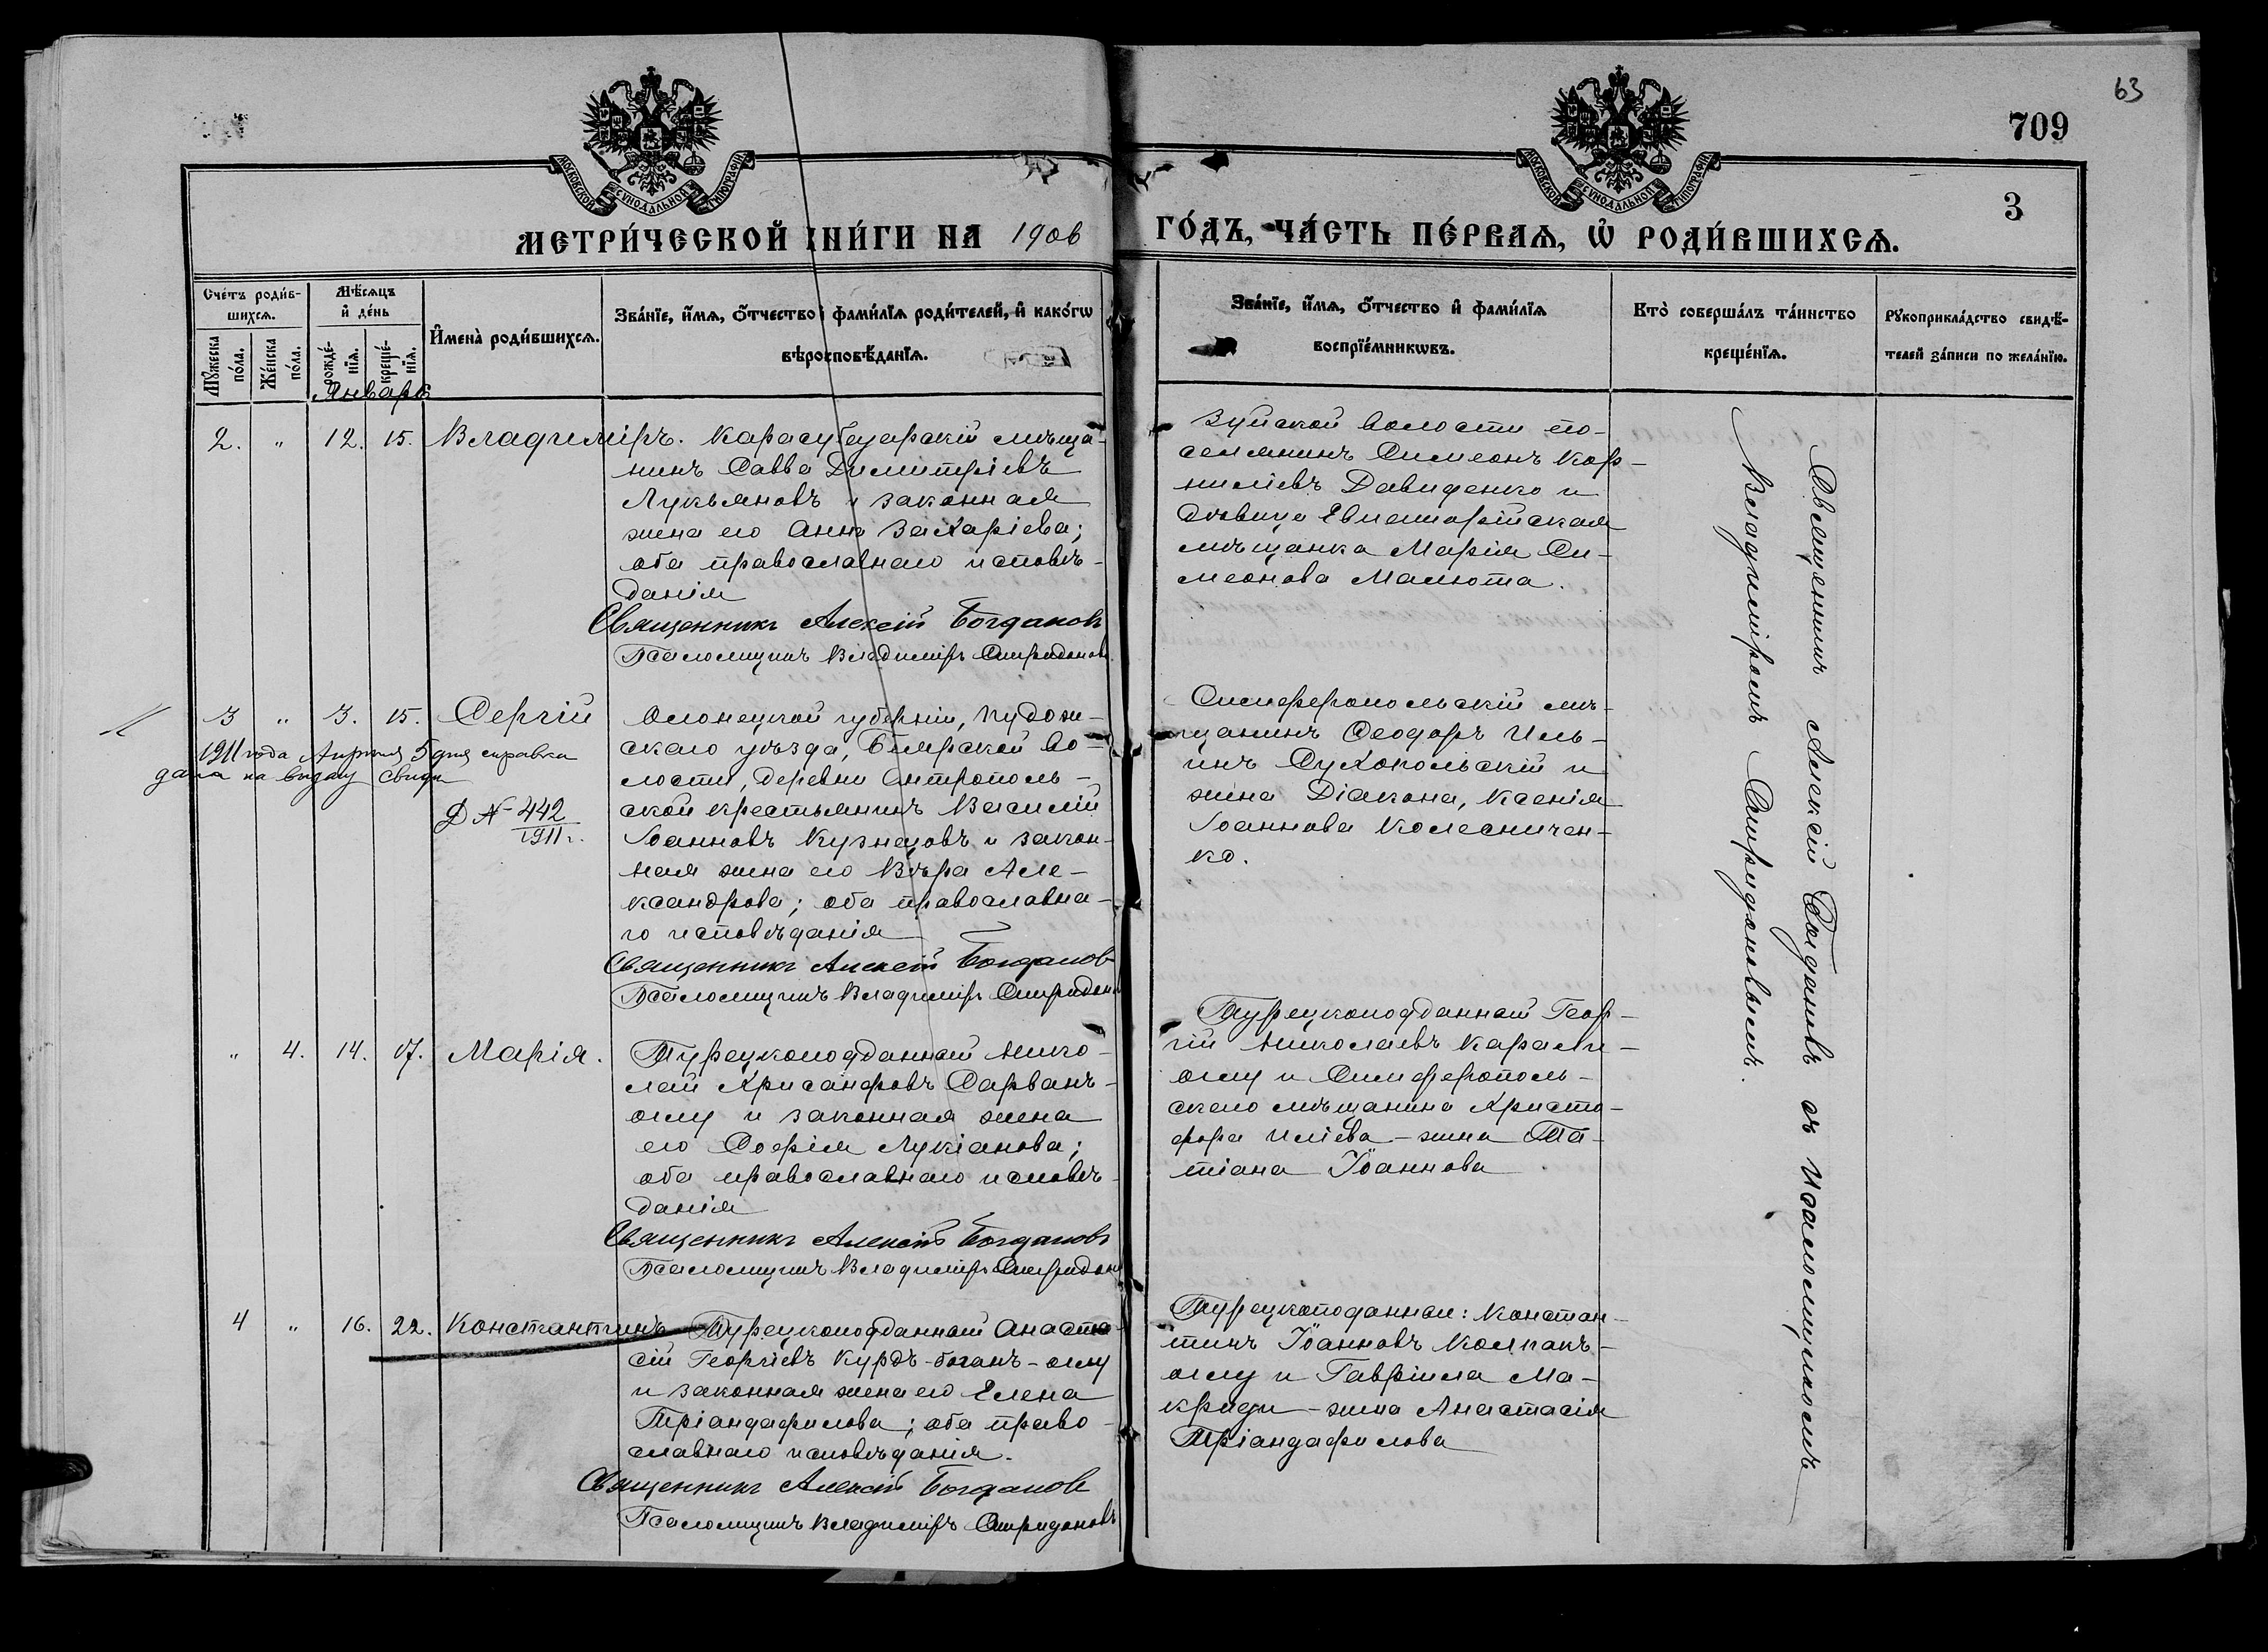 63
709
3
МОСКОВСКОЙ СѴНОДАЛЬНОЙ ТИПОГРАФІИ
МОСКОВСКОЙ СѴНОДАЛЬНОЙ ТИПОГРАФІИ
МЕТРИ́ЧЕСКОЙ КНИ́ГИ НА 1906 ГО́ДЪ, ЧА́СТЬ ПЕ́РВАѦ, Ѡ҆ РОДИ́ВШИХСѦ.
Сче́тъ роди́в-
шихсѧ.
Мꙋ́жеска по́ла.
Же́нска по́ла.
Мѣ́сѧцъ и҆ де́нь
рожде́-нїѧ.
креще́-нїѧ.
И҆мена̀ роди́вшихсѧ.
Зва́нїе, и҆́мѧ, о҆́тчество и҆ фами́лїѧ роди́телей, и҆ како́гѡ
вѣроисповѣ́данїѧ.
Зва́нїе, и҆́мѧ, о҆́тчество и҆ фами́лїѧ
воспрїе́мникѡвъ.
Кто̀ соверша́лъ та́инство
креще́нїѧ.
Рꙋкоприкла́дство свидѣ́-
телей за́писи по жела́нїю.
Январь
2. " 12. 15. Владиміръ.
Карасубазарскій мѣща-
нинъ Савва Димитріевъ
Лукьяновъ и законная
жена его Анна Захаріева;
оба православнаго исповѣ-
данія
Священникъ Алексій Богдановъ
Псаломщикъ Владиміръ Спиридоновъ
Зуйской волости по-
селянинъ Симеонъ Кор-
ниліевъ Давиденко и
дѣвица Евпаторійская
мѣщанка Марія Си-
меонова Малюта.
3 " 3. 15. Сергій
1911 года Апрѣля 5 дня справка
дана на выдачу свидѣ
Д № 442
1911 г.
Олонецкой губерніи, Пудож-
скаго уѣзда, Бѣлярской во-
лости, деревни Антрополь-
ской крестьянинъ Василій
Іоанновъ Кузнецовъ и закон-
ная жена его Вѣра Але-
ксандрова; оба православна-
го исповѣданія
Священникъ Алексій Богдановъ
Псаломщикъ Владиміръ Спиридоновъ
Симферопольскій мѣ-
щанинъ Ѳеодоръ Иль-
инъ Сухопольскій и
жена Діакона, Ксенія
Іоаннова Колесничен-
ко.
" 4. 14. 17. Марія.
Турецкоподданный Нико-
лай Хрисанфовъ Сарванъ-
оглу и законная жена
его Софія Лукіанова;
оба православнаго исповѣ-
данія
Священникъ Алексій Богдановъ
Псаломщикъ Владиміръ Спиридоновъ
Турецкоподданный Геор-
гій Николаевъ Карали-
оглу и Симферополь-
скаго мѣщанина Христо-
фора Иліева - жена Та-
тіана Іоаннова
4 " 16. 22. Константинъ
Турецкоподданный Анаста-
сій Георгіевъ Курдъ-боганъ-оглу
и законная жена его Елена
Тріандафилова; оба право-
славнаго исповѣданія.
Священникъ Алексій Богдановъ
Псаломщикъ Владиміръ Спиридоновъ
Турецкоподанные: Констан-
тинъ Іоанновъ Колпакъ-
оглу и Гавріила Ма-
криди - жена Анастасія
Тріандафилова
Священникъ Алексій Богдановъ съ псаломщикомъ
Владиміромъ Спиридоновымъ.